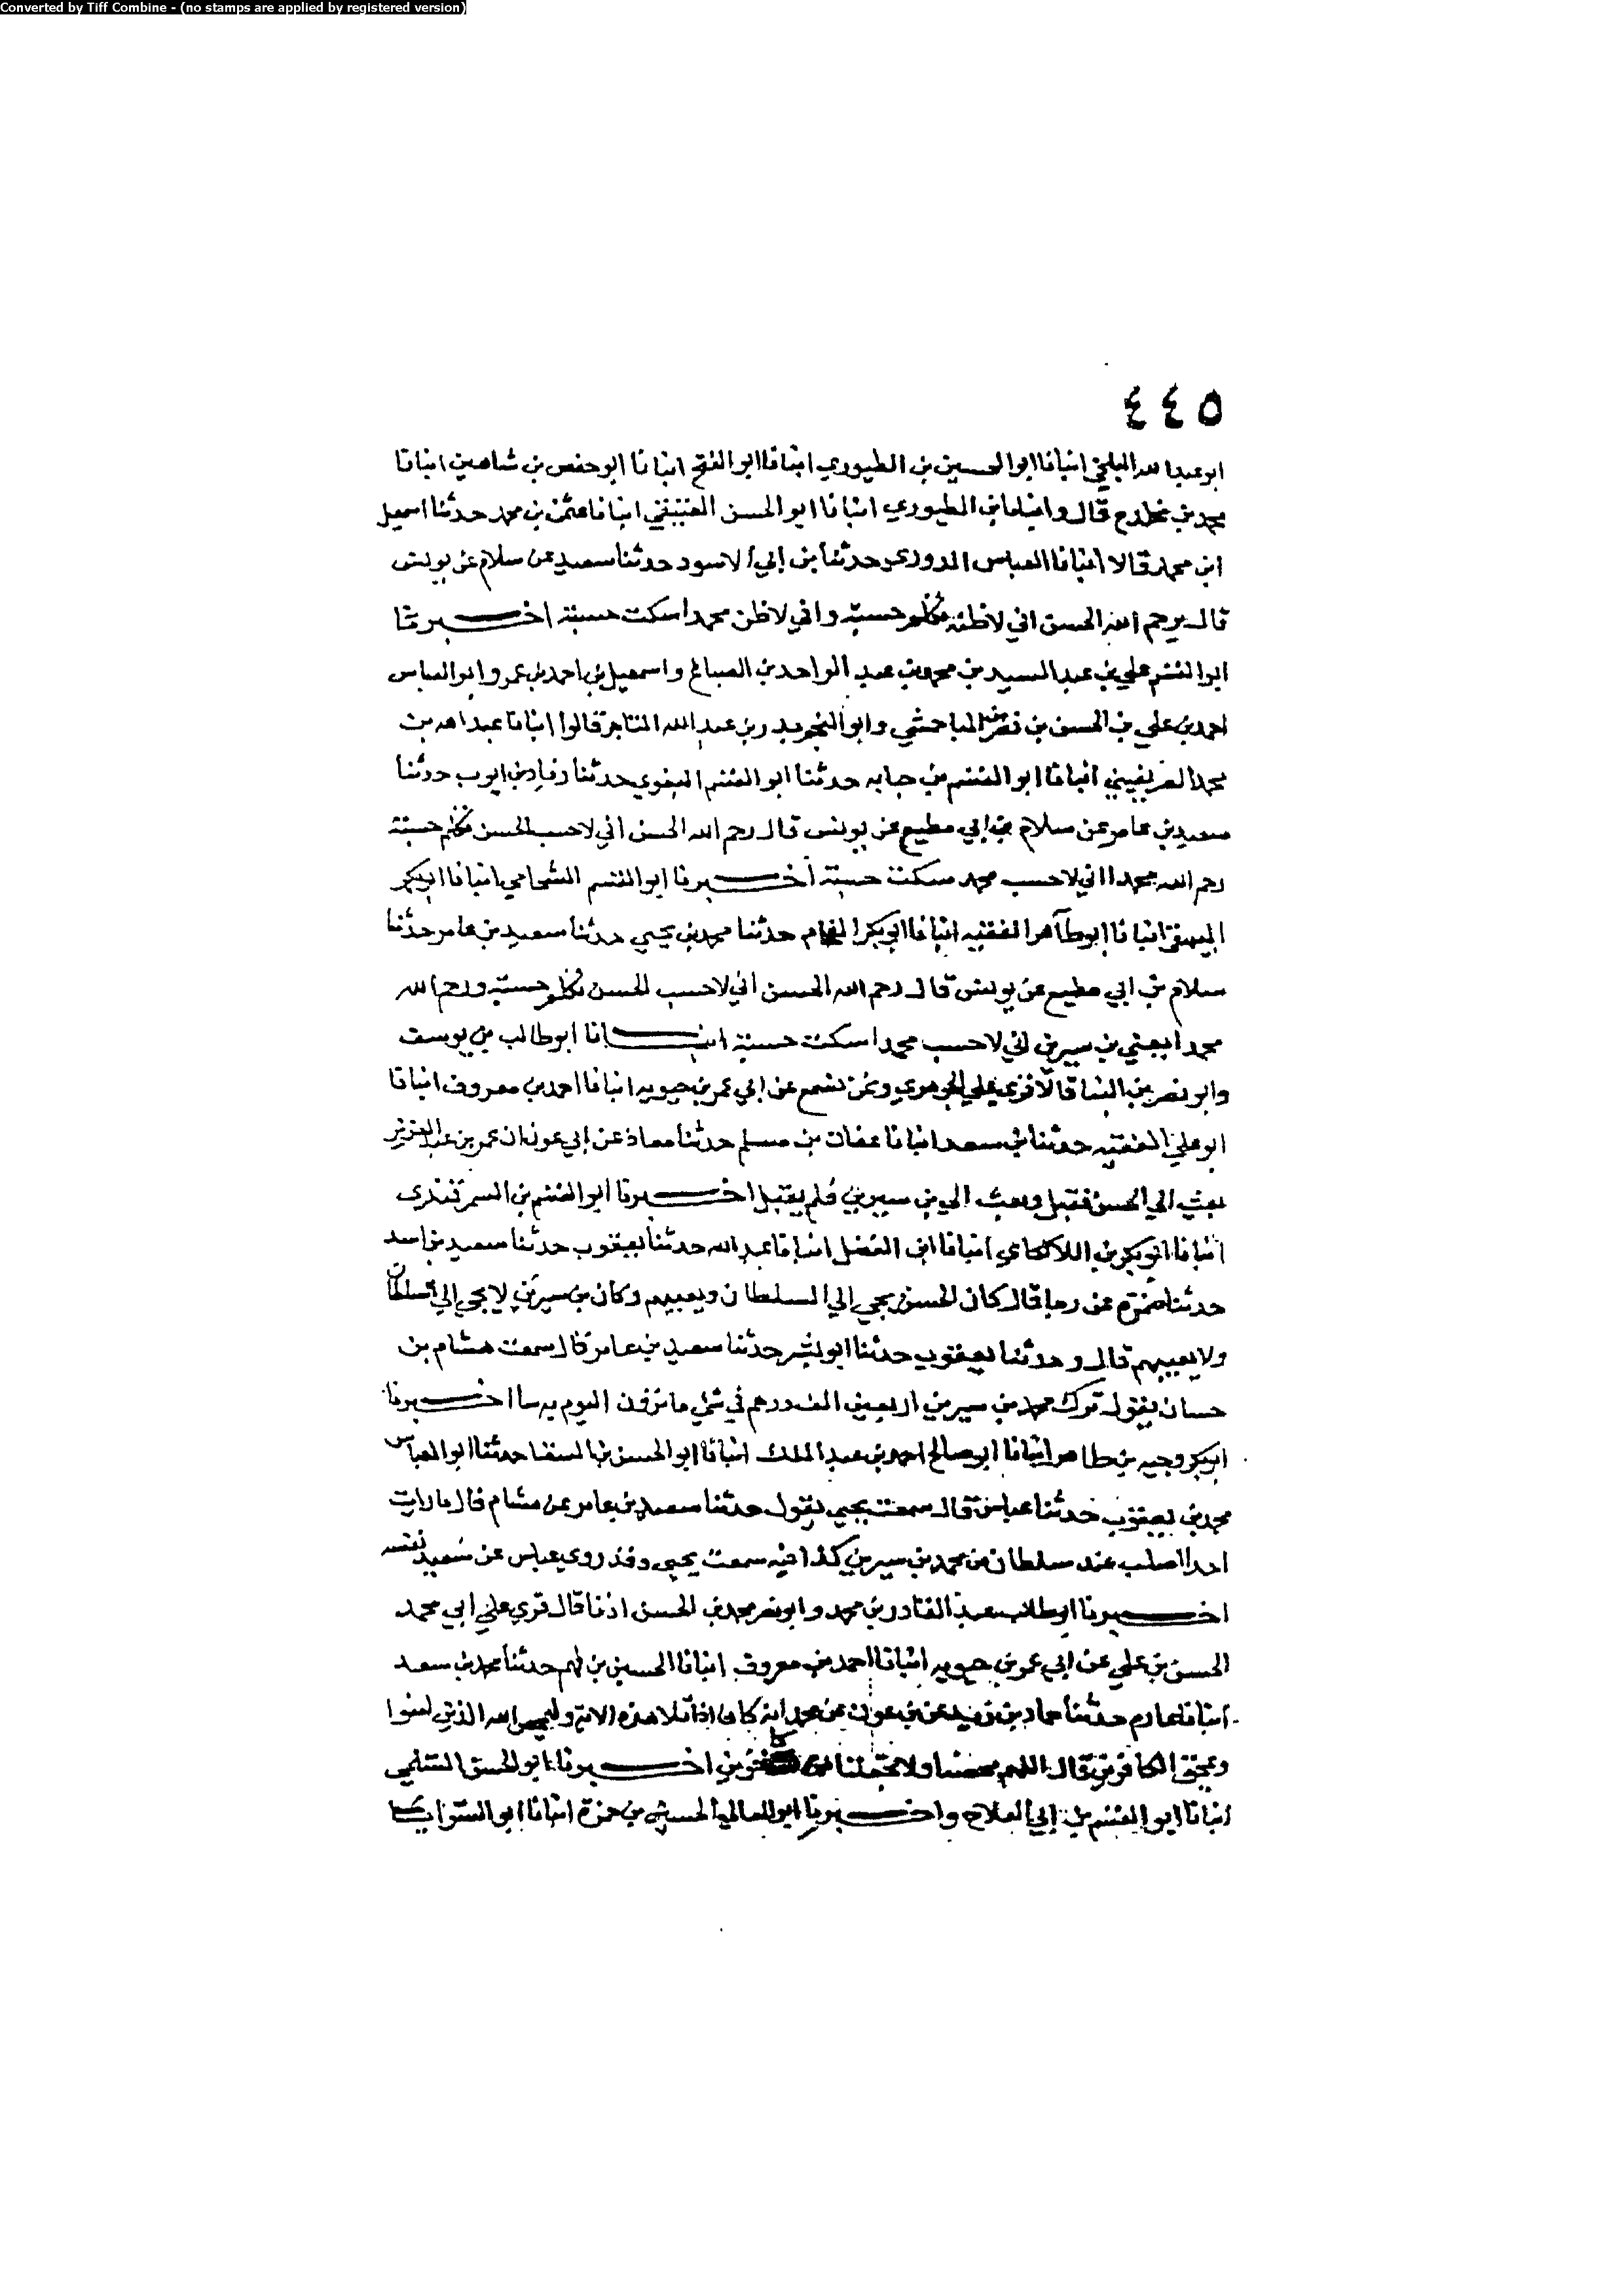 Converted by Tiff Combine - (no stamps are applied by registered version)
٤٤٥
ابو عبدالله البلخي انبانا ابو الحسين بن الطيوري انبانا ابو الفتح انبانا ابو حفص بن شاهين انبانا
محمد بن مخلد ح قال وانبانا بن الطيوري انبانا ابو الحسن العتيقي انبانا عثمن بن محمد حدثنا اسمعيل
ابن محمد قالا انبانا العباس الدوري حدثنا بن ابي الاسود حدثنا سعيد عن سلام عن يونس
قال يرحم الله الحسن اني لاظنه تكلم حسبة واني لاظن محمدا سكت حسبة اخبرنا
ابو القسم علي بن عبد السيد بن محمد بن عبد الواحد بن الصباغ واسمعيل بن احمد بن عمر وابو العباس
احمد بن علي بن الحسن بن نصر المباحثي وابو النجم بدر بن عبد الله التاجر قالوا انبانا عبد الله بن
محمد الصريفيني انبانا ابو القسم بن حبابه حدثنا ابو القسم البغوي حدثنا زياد بن ايوب حدثنا
سعيد بن عامر عن سلام بن ابي مطيع عن يونس قال رحم الله الحسن اني لاحسب الحسن تكلم حسبة
رحم الله محمدا اني لاحسب محمد سكت حسبة اخبرنا ابو القسم الشحامي انبانا ابو بكر
البيهقي انبانا ابو طاهر الفقيه انبانا ابو بكر الفحام حدثنا محمد بن يحيي حدثنا سعيد بن عامر حدثنا
سلام بن ابي مطيع عن يونس قال رحم الله الحسن اني لاحسب الحسن تكلم حسبة ورحم الله
محمدا يعني بن سيرين اني لاحسب محمدا سكت حسبة انبانا ابو طالب بن يوسف
وابو نصر بن البنا قالا قري علي الجوهري ونحن نسمع عن ابي عمر بن حيويه انبانا احمد بن معروف انبانا
ابو علي الفقيه حدثنا بن سعد انبانا عفان بن مسلم حدثنا معاذ عن ابي عون ان عمر بن عبد العزيز
بعث الي الحسن فقبل وبعث الي بن سيرين فلم يقبل اخبرنا ابو القسم بن السمرقندي
انبانا ابو بكر بن اللالكاي انبانا ابن الفضل انبانا عبد الله حدثنا يعقوب حدثنا سعيد بن اسد
حدثنا ضمرة عن رجا قال كان الحسن يجي الي السلطان ويعيبهم وكان بن سيرين لا يجي الي السلطان
ولا يعيبهم قال وحدثنا يعقوب حدثنا ابو بشر حدثنا سعيد بن عامر قال سمعت هشام بن
حسان يقول ترك محمد بن سيرين اربعين الف درهم في شي ما ترون اليوم به باسا اخبرنا
ابو بكر وجيه بن طاهر انبانا ابو صالح احمد بن عبد الملك انبانا ابو الحسن بن السقا حدثنا ابو العباس
محمد بن يعقوب حدثنا عباس قال سمعت يحيي يقول حدثنا سعيد بن عامر عن هشام قال ما رايت
احدا اصلب عند سلطان من محمد بن سيرين كذا فيه سمعت يحيي وقد روي عباس عن سعيد نفسه
اخبرنا ابو طالب عبد القادر بن محمد وابو نصر محمد بن الحسن اذنا قال قري علي ابي محمد
الحسن بن علي عن ابي عمر بن حيويه انبانا احمد بن معروف انبانا الحسين بن فهم حدثنا محمد بن سعد
انبانا عارم حدثنا حماد بن زيد عن بن عون عن محمد انه كان اذا تلا هذه الاية وليمحص الله الذين امنوا
ويمحق الكافرين قال اللهم محصنا ولا تجعلنا كافرين اخبرنا ابو الحسن السلمي
انبانا ابو القسم بن ابي العلاح واخبرنا ابو المعالي الحسين بن حمزة انبانا ابو